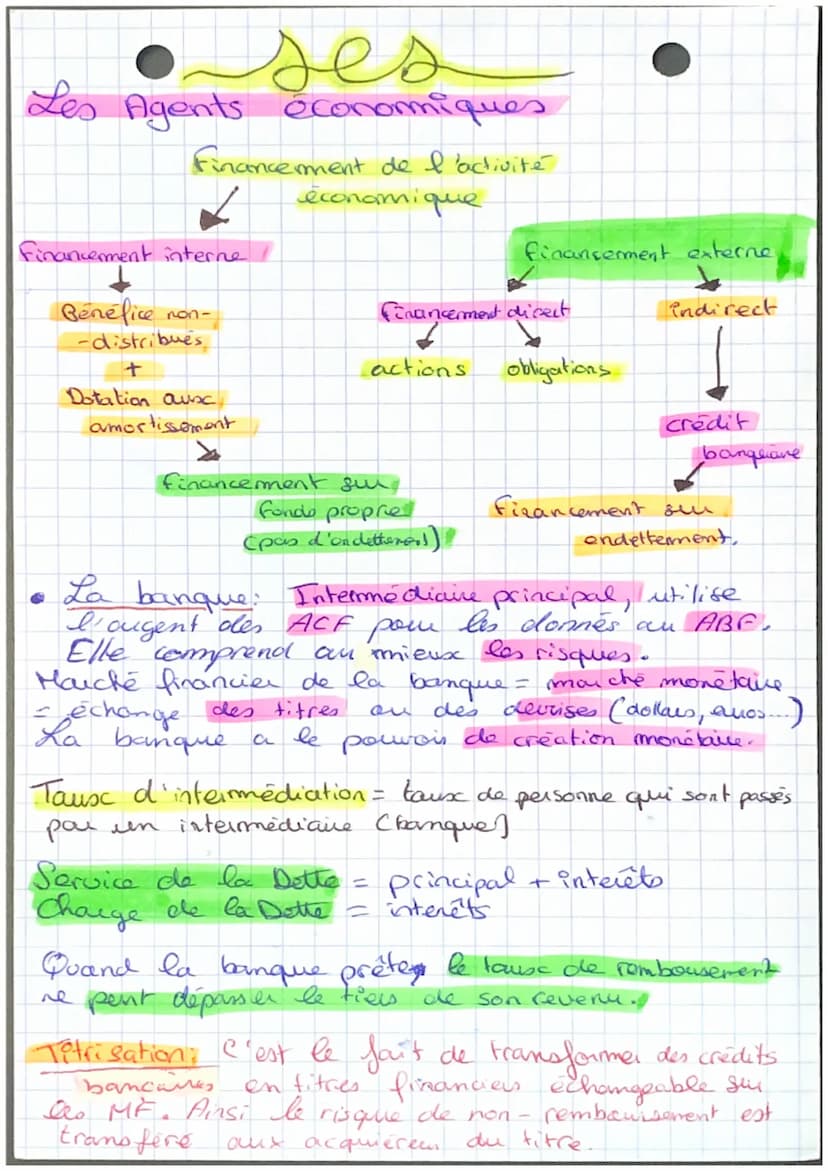 ses
Les Agents économiques
Financement de l'activité
économique
Financement interne
Financement externe
Bénéfice non-
-distribués
+
Dotation aux
amortissement
Financement direct
indirect
actions
obligations
crédit
banquaire
Financement sur
fonds propre
(pas d'endettement)
Financement sur
endettement.
• La banque: Intermédiaire principal, utilise
l'argent des ACF pour les donnés au ABF.
Elle comprend au mieux les risques.
Marché financier de la banque = marché monétaire
= échange des titres ou des devises (dollars, euros...)
La banque a le pouvoir de création monétaire.
Taux d'intermédiation = taux de personne qui sont passés
par un intermédiaire (banque)
Service de la Dette = principal + interêts
Charge de la Dette = interêts
Quand la banque prête, le taux de remboursement
ne peut dépasser le tiers de son revenu.
Titrisation: C'est le fait de transformer des crédits
bancaires en titres financiers échangeable sur
les MF. Ainsi le risque de non-remboursement est
transféré aux acquiéreur du titre.